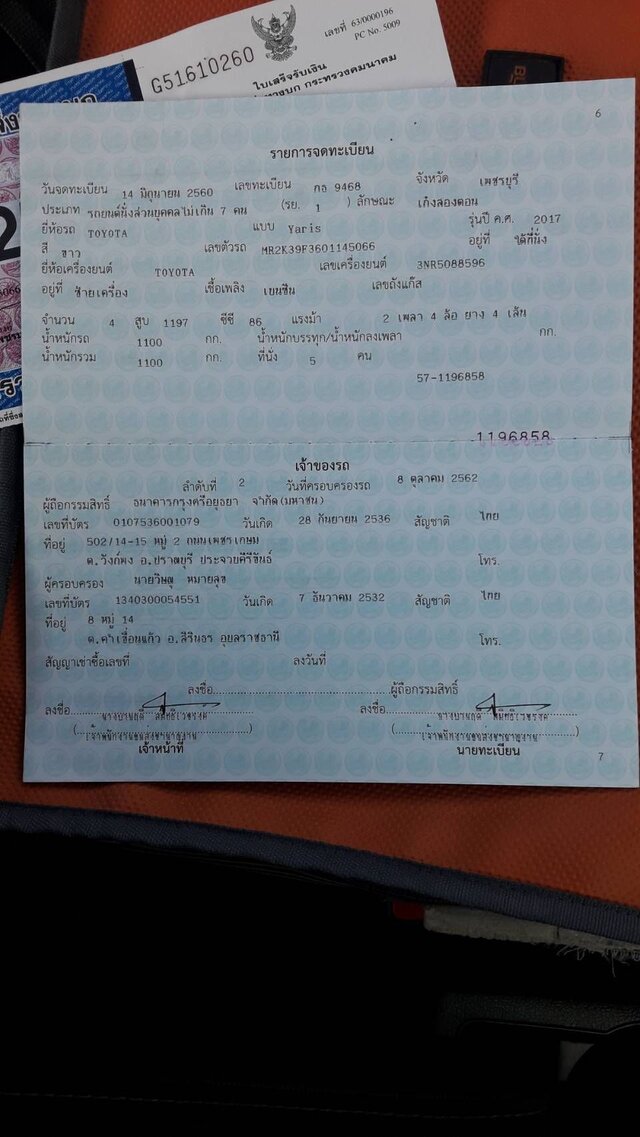 เลขที่ 63/0000196
PC No. 5009
G51610260
ใบเสร็จรับเงิน
กระทรวงคมนาคม
6
รายการจดทะเบียน
วันจดทะเบียน 14 มิถุนายน 2560 เลขทะเบียน กอ 9468 จังหวัด เพชรบุรี
ประเภท รถยนต์นั่งส่วนบุคคลไม่เกิน 7 คน (รย. 1 ) ลักษณะ เก๋งสองตอน
ยี่ห้อรถ TOYOTA แบบ Yaris รุ่นปี ค.ศ. 2017
สี ขาว เลขตัวรถ MR2K39F3601145066 อยู่ที่ ใต้ที่นั่ง
ยี่ห้อเครื่องยนต์ TOYOTA เลขเครื่องยนต์ 3NR5088596
อยู่ที่ ซ้ายเครื่อง เชื้อเพลิง เบนซิน เลขถังแก๊ส
จำนวน 4 สูบ 1197 ซีซี 86 แรงม้า 2 เพลา 4 ล้อ ยาง 4 เส้น
น้ำหนักรถ 1100 กก. น้ำหนักบรรทุก/น้ำหนักลงเพลา กก.
น้ำหนักรวม 1100 กก. ที่นั่ง 5 คน
57-1196858
1196858
เจ้าของรถ
ลำดับที่ 2 วันที่ครอบครองรถ 8 ตุลาคม 2562
ผู้ถือกรรมสิทธิ์ ธนาคารกรุงศรีอยุธยา จำกัด(มหาชน)
เลขที่บัตร 0107536001079 วันเกิด 28 กันยายน 2536 สัญชาติ ไทย
ที่อยู่ 502/14-15 หมู่ 2 ถนนเพชรเกษม
ต.วังก์พง อ.ปราณบุรี ประจวบคีรีขันธ์ โทร.
ผู้ครอบครอง นายวิษณุ หมายสุข
เลขที่บัตร 1340300054551 วันเกิด 7 ธันวาคม 2532 สัญชาติ ไทย
ที่อยู่ 8 หมู่ 14
ต.คำเขื่อนแก้ว อ.สิรินธร อุบลราชธานี โทร.
สัญญาเช่าซื้อเลขที่ ลงวันที่
ลงชื่อ ผู้ถือกรรมสิทธิ์
ลงชื่อ ลงชื่อ
เจ้าพนักงานขนส่งชำนาญงาน เจ้าพนักงานขนส่งชำนาญงาน
เจ้าหน้าที่ นายทะเบียน
7